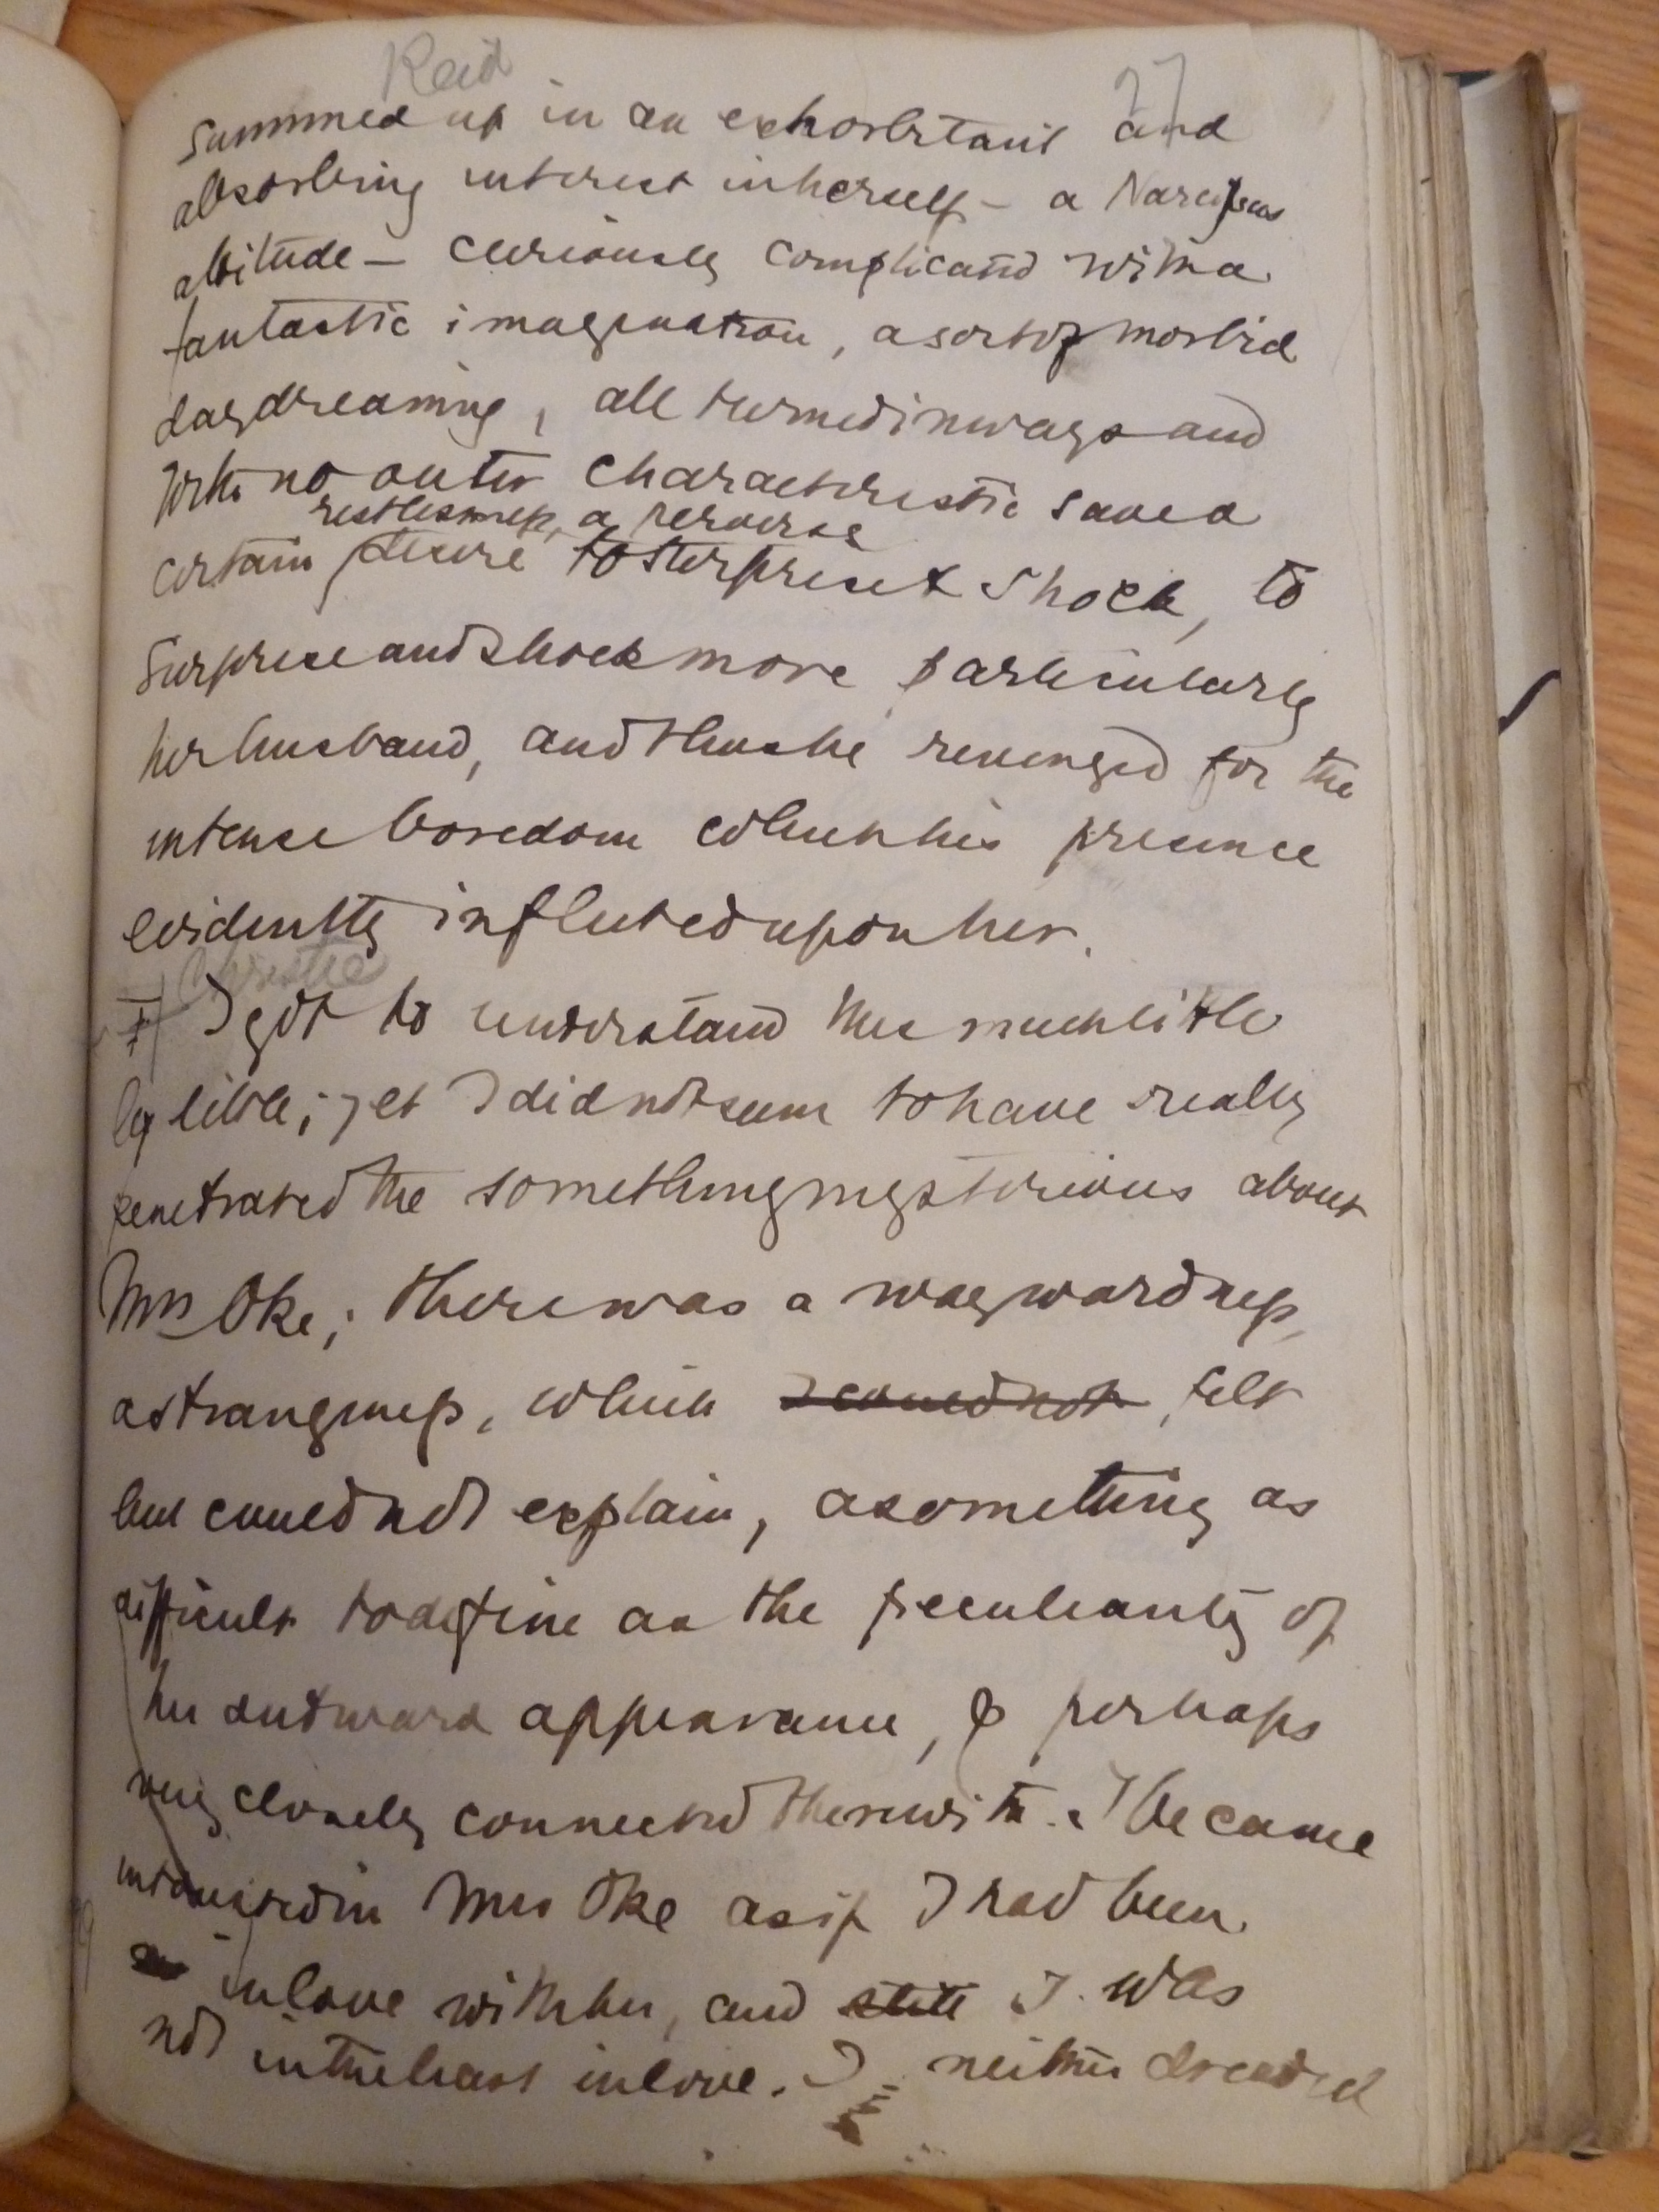 Reid
27
summed up in an exhorbitant and
absorbing interest in herself – a Narcissus
attitude – curiously complicated with a
fantastic imagination, a sort of morbid
daydreaming, all turned inwards and
with no outer characteristic save a
restlessness, a perverse
certain desire to surprise & shock, to
surprise and shock more particularly
her husband, and thus be revenged for the
intense boredom which his presence
evidently inflicted upon her.
Christie
I got to understand this much little
by little; yet I did not seem to have really
penetrated the something mysterious about
Mrs Oke; there was a waywardness,
a strangeness, which I could not felt
but could not explain, a something as
difficult to define as the peculiarity of
her outward appearance, & perhaps
very closely connected therewith. I became
interested in Mrs Oke as if I had been
in love with her, and I was
not in the least in love. I neither dreaded